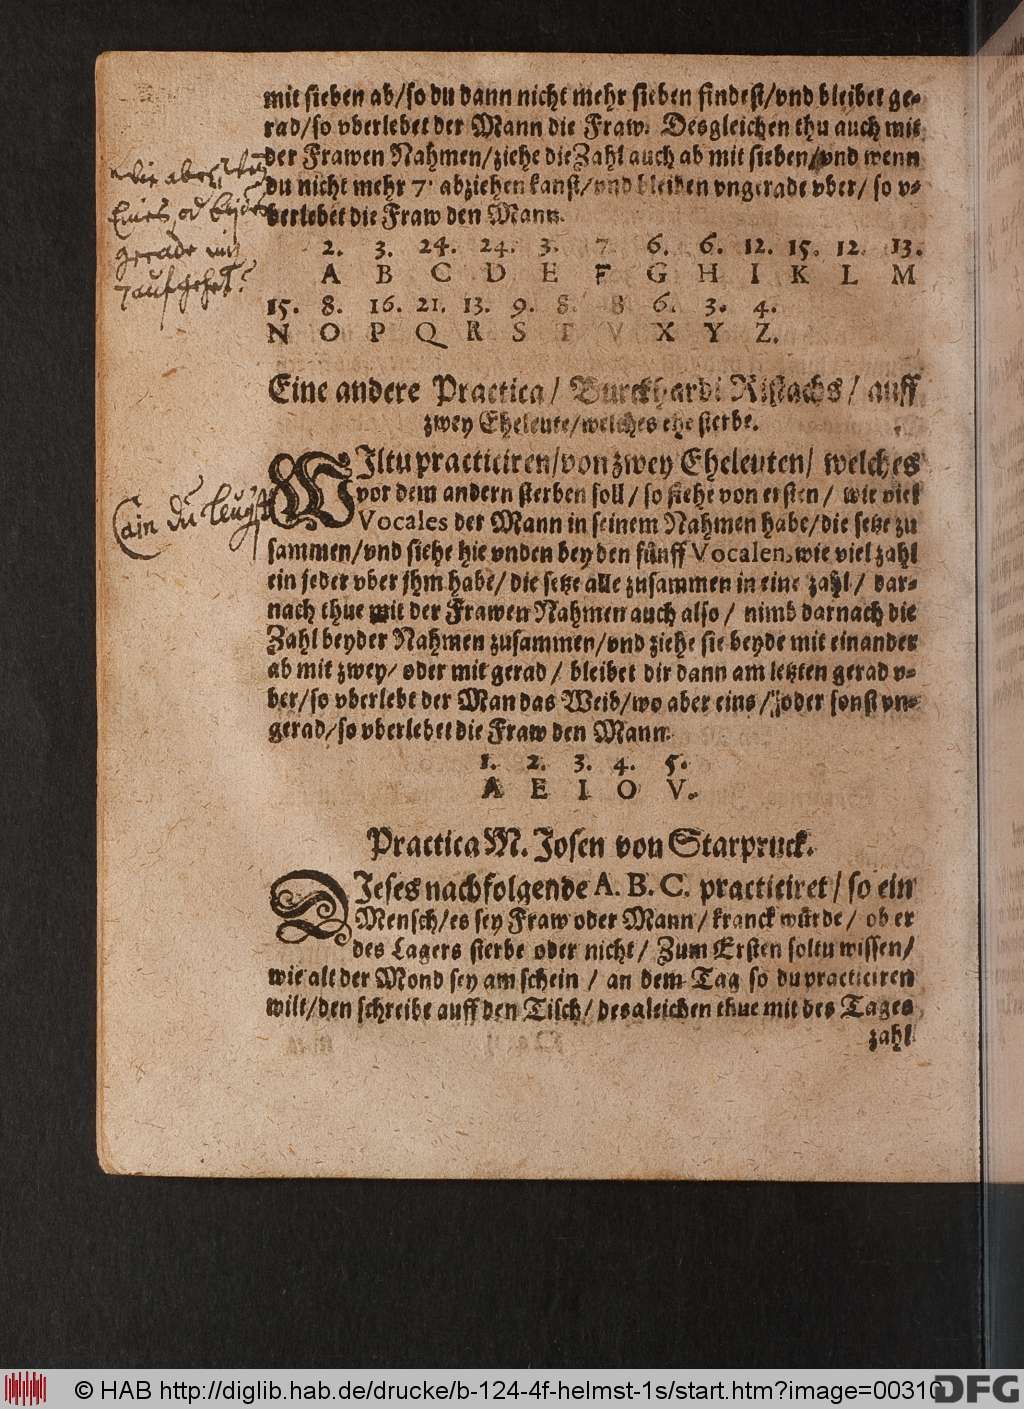 mit sieben ab/so du dann nicht mehr sieben findest/vnd bleibet ge-
rad/so vberlebet der Mann die Fraw. Desgleichen thu auch mit
der Frawen Nahmen/ziehe die Zahl auch ab mit sieben/vnd wenn
du nicht mehr 7. abziehen kanst/vnd bleiben vngerade vber/ so v-
berlebet die Fraw den Mann.
2. 3. 24. 24. 3. 7 6. 6. 12. 15. 12. 13.
A B C D E F G H I K L M
15. 8. 16. 21. 13. 9. 8. 8 6. 3. 4.
N O P Q R S T V X Y Z.
gerade mit
7 aufgehet?
Eine andere Practica/ Burckhardi Ristachs/ auff
zwey Eheleute/welches ehe sterbe.
WIltu practiciren/von zwey Eheleuten/ welches
vor dem andern sterben soll/ so siehe von ersten/ wie viel
Vocales der Mann in seinem Nahmen habe/die setze zu
sammen/vnd siehe hie vnden bey den fünff Vocalen, wie viel zahl
ein jeder vber jhm habe/ die setze alle zusammen in eine zahl/ dar-
nach thue mit der Frawen Nahmen auch also/ nimb darnach die
Zahl beyder Nahmen zusammen/vnd ziehe sie beyde mit einander
ab mit zwey/ oder mit gerad/ bleibet dir dann am letzten gerad v-
ber/so vberlebt der Man das Weib/wo aber eins/oder sonst vn-
gerad/so vberlebet die Fraw den Mann.
1. 2. 3. 4. 5.
A E I O V.
Practica M. Josen von Starpruck.
DIeses nachfolgende A. B. C. practiciret/ so ein
Mensch/es sey Fraw oder Mann/ kranck würde/ ob er
des Lagers sterbe oder nicht/ Zum Ersten soltu wissen/
wie alt der Mond sey am schein/ an dem Tag so du practiciren
wilt/den schreibe auff den Tisch/ desgleichen thue mit des Tages
zahl
© HAB http://diglib.hab.de/drucke/b-124-4f-helmst-1s/start.htm?image=00310
DFG